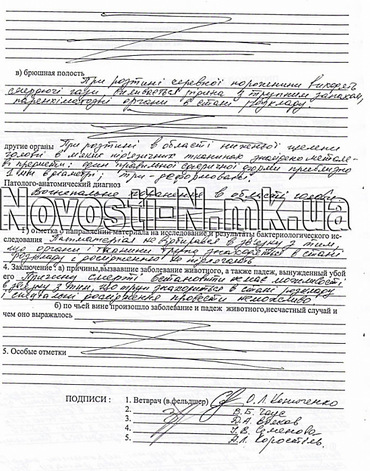 в) брюшная полость При розтині черевної порожнини виходять
смердючі гази виливається рідина з трупним запахом,
паренхіматозні органи в стані розкладу.
другие органы При розтині в області нижньої щелепи
голові в мяких тканинах знайдено металe-
ві предмети правильної сферичної форми приблизно
1 мм в діаметрі; три - деформовані.
Патолого-анатомический диагноз
в області голови
Novosti-N.mk.ua
г) отметка о направлении материала на исследование и результаты бактериологического ис-
следования Патматеріал не відбирався в звязку з тим,
що органи і тканини трупа знаходяться в стані
розкладу і дослідженню не підлягають
4. Заключение о причинах, вызвавшие заболевание животного, а также падеж, вынужденный убой
его Причину смерті встановити немає можливості
в звязку з тим, що труп знаходиться в стані розкладу
і дослідження провести неможливо
б) по чьей вине произошло заболевание и падеж животного, несчастный случай и
чем оно выражалось
5. Особые отметки
ПОДПИСИ: 1. Ветврач (в.фельдшер)
2. В.Б.
3. Д.А. Волков
4. Г.В. Семенова
5. А.Л. Коростіль